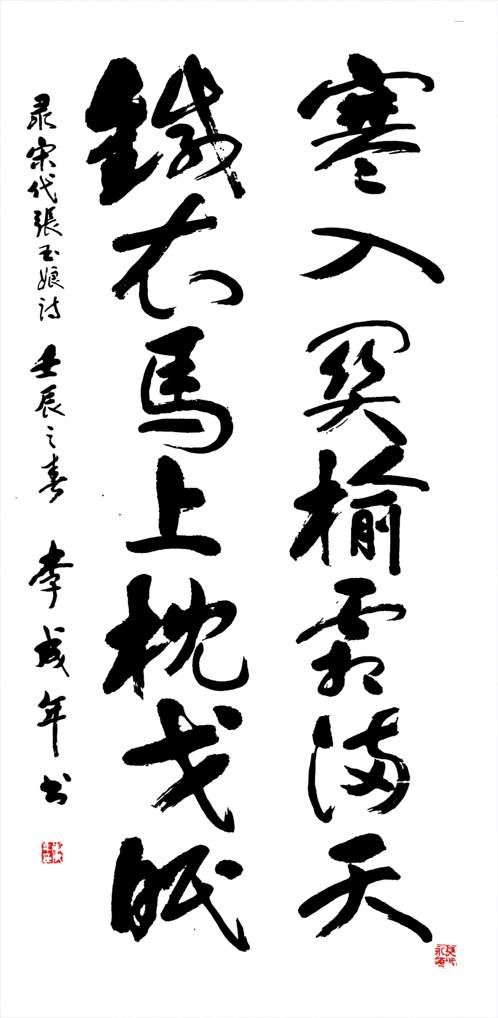 寒入関榆霜满天
鐵衣馬上枕戈眠
录宋代張玉娘诗 壬辰之春 李成年书